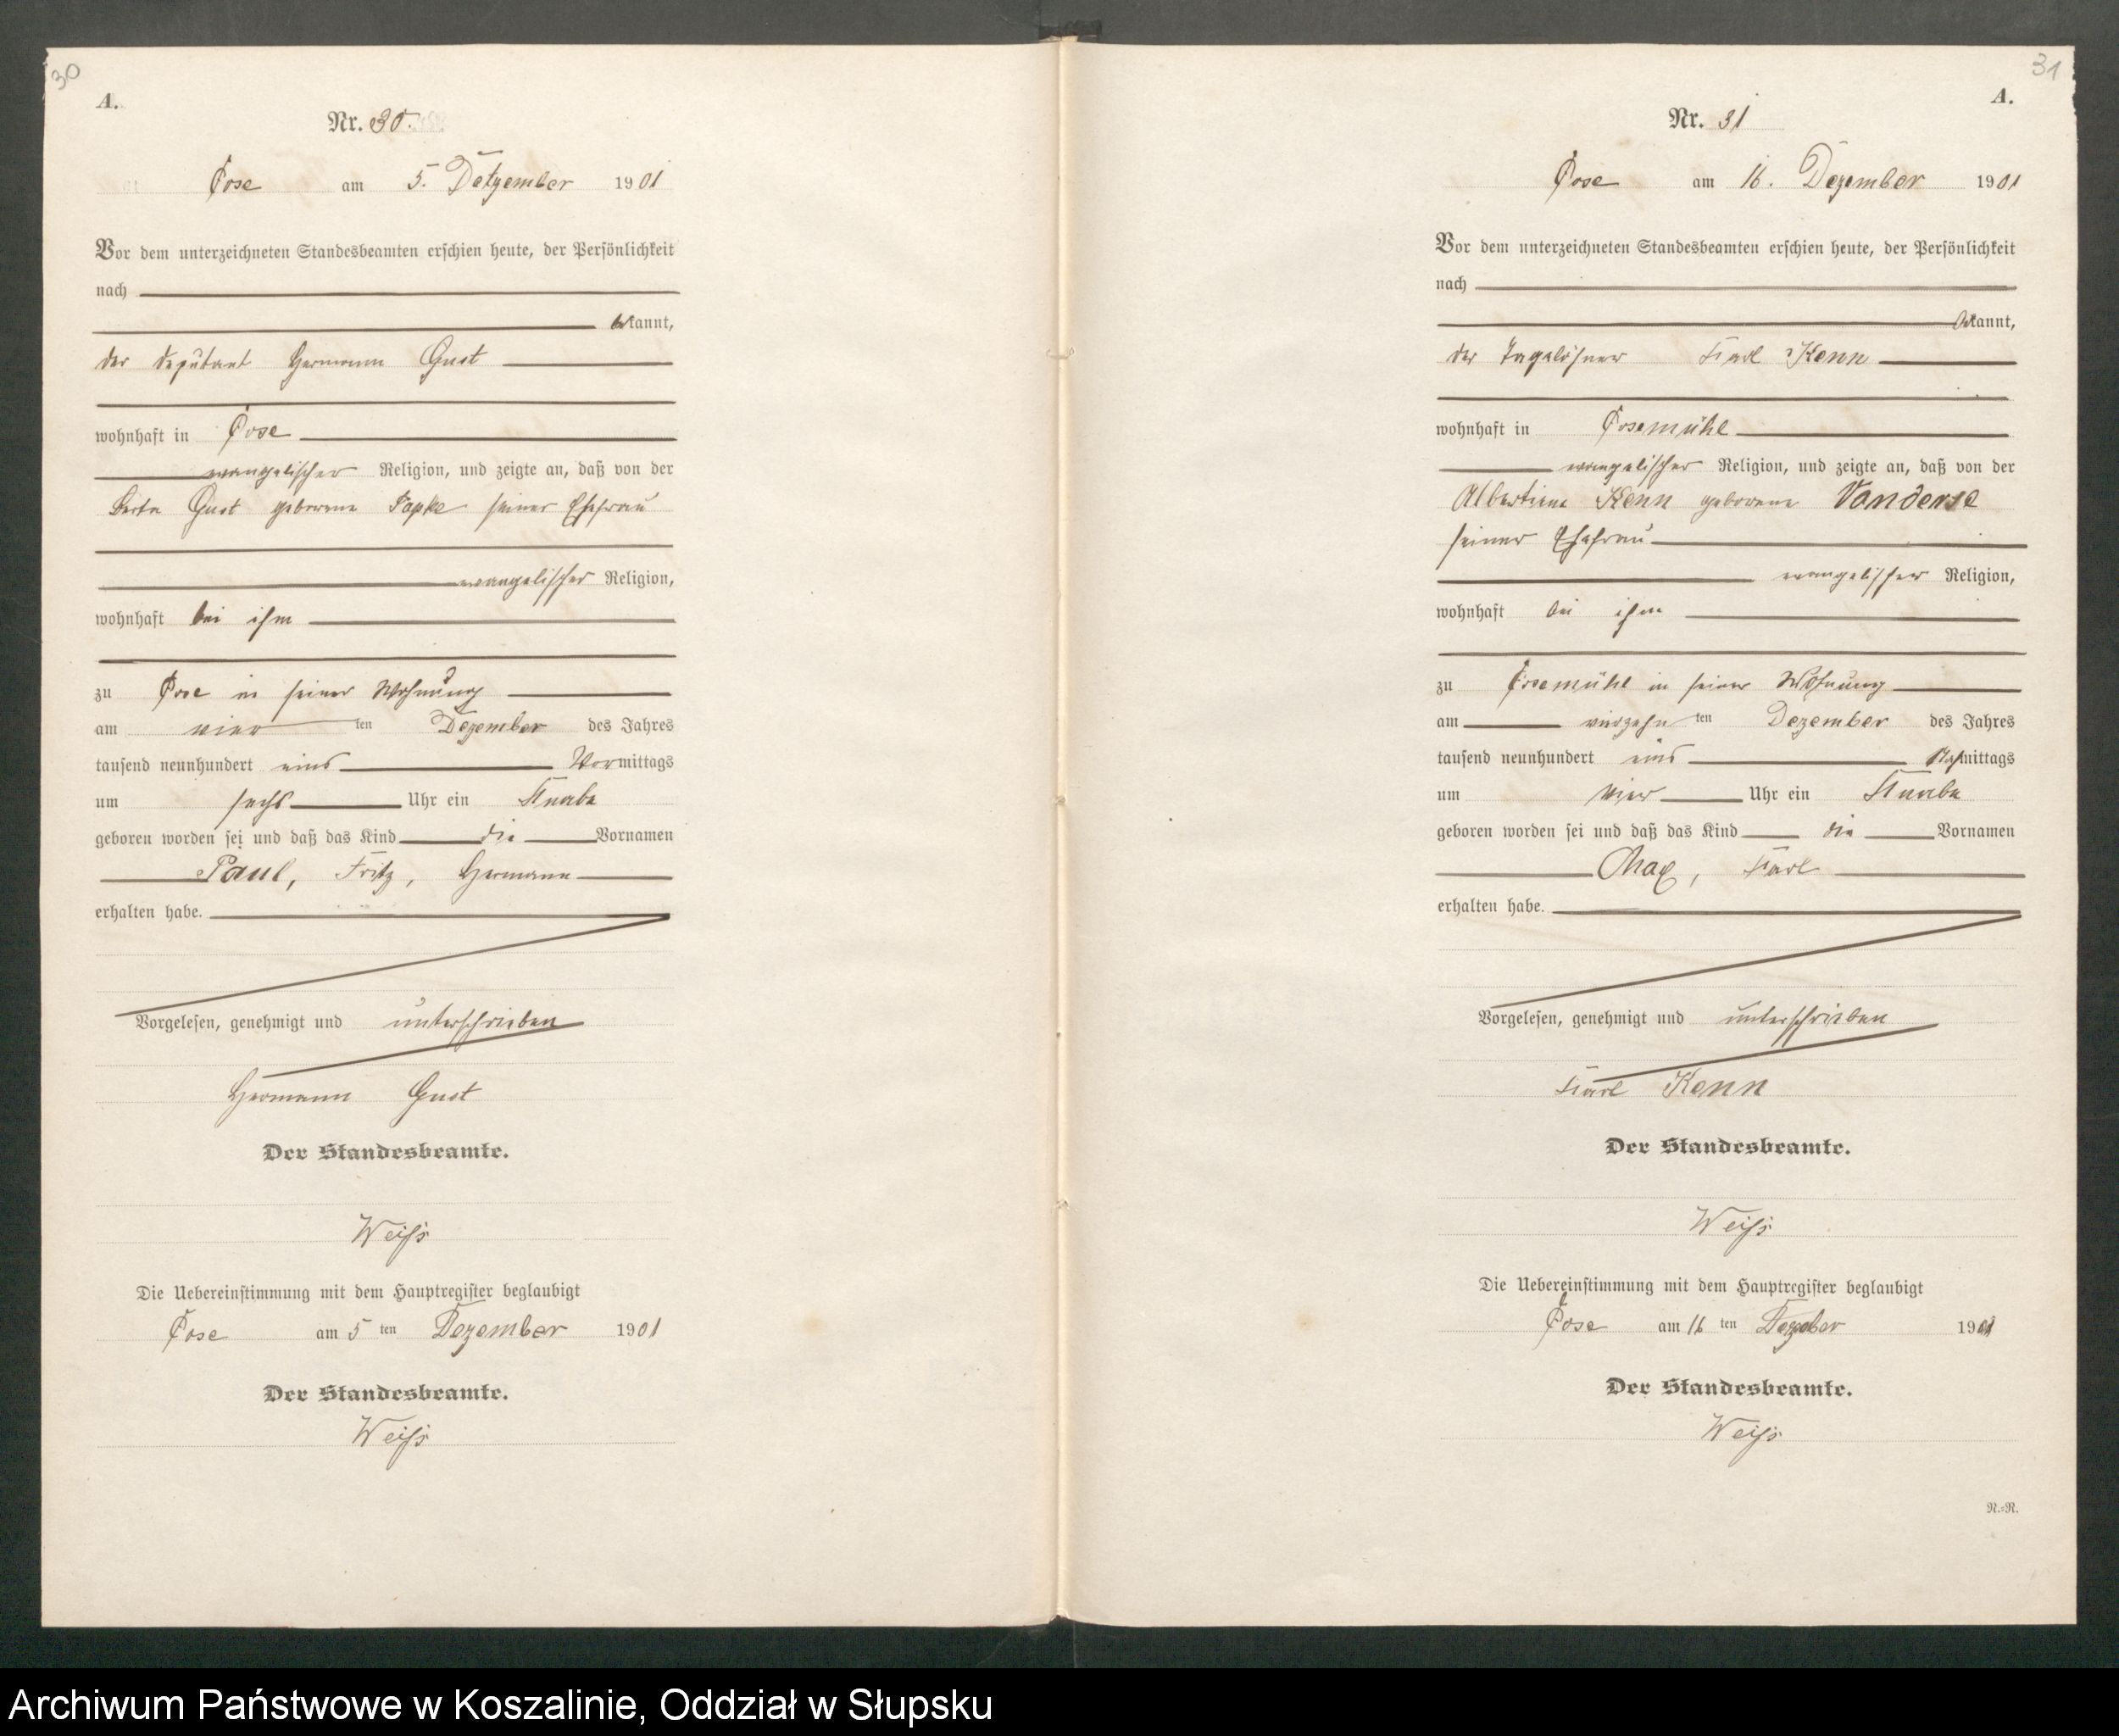 30
A.
Nr. 30.
Pose am 5. Detzember 1901
Vor dem unterzeichneten Standesbeamten erschien heute, der Persönlichkeit
nach
bekannt,
der Deputant Hermann Gust
wohnhaft in Pose
evangelischer Religion, und zeigte an, daß von der
Berta Gust geborene Papke seiner Ehefrau
evangelischer Religion,
wohnhaft bei ihm
zu Pose in seiner Wohnung
am vier ten Dezember des Jahres
tausend neunhundert eins Vormittags
um sechs Uhr ein Knabe
geboren worden sei und daß das Kind die Vornamen
Paul, Fritz, Hermann
erhalten habe.
Vorgelesen, genehmigt und unterschrieben
Hermann Gust
Der Standesbeamte.
Weiß
Die Uebereinstimmung mit dem Hauptregister beglaubigt
Pose am 5 ten Dezember 1901
Der Standesbeamte.
Weiß
31
A.
Nr. 31
Pose am 16. Dezember 1901
Vor dem unterzeichneten Standesbeamten erschien heute, der Persönlichkeit
nach
bekannt,
der Tagelöhner Karl Kenn
wohnhaft in Posemühl
evangelischer Religion, und zeigte an, daß von der
Albertine Kenn geborene Vanderse
seiner Ehefrau
evangelischer Religion,
wohnhaft bei ihm
zu Posemühl in seiner Wohnung
am vierzehn ten Dezember des Jahres
tausend neunhundert eins Nachmittags
um vier Uhr ein Knabe
geboren worden sei und daß das Kind die Vornamen
Max, Karl
erhalten habe.
Vorgelesen, genehmigt und unterschrieben
Karl Kenn
Der Standesbeamte.
Weiß
Die Uebereinstimmung mit dem Hauptregister beglaubigt
Pose am 16 ten Dezember 1901
Der Standesbeamte.
Weiß
N.=N.
Archiwum Państwowe w Koszalinie, Oddział w Słupsku